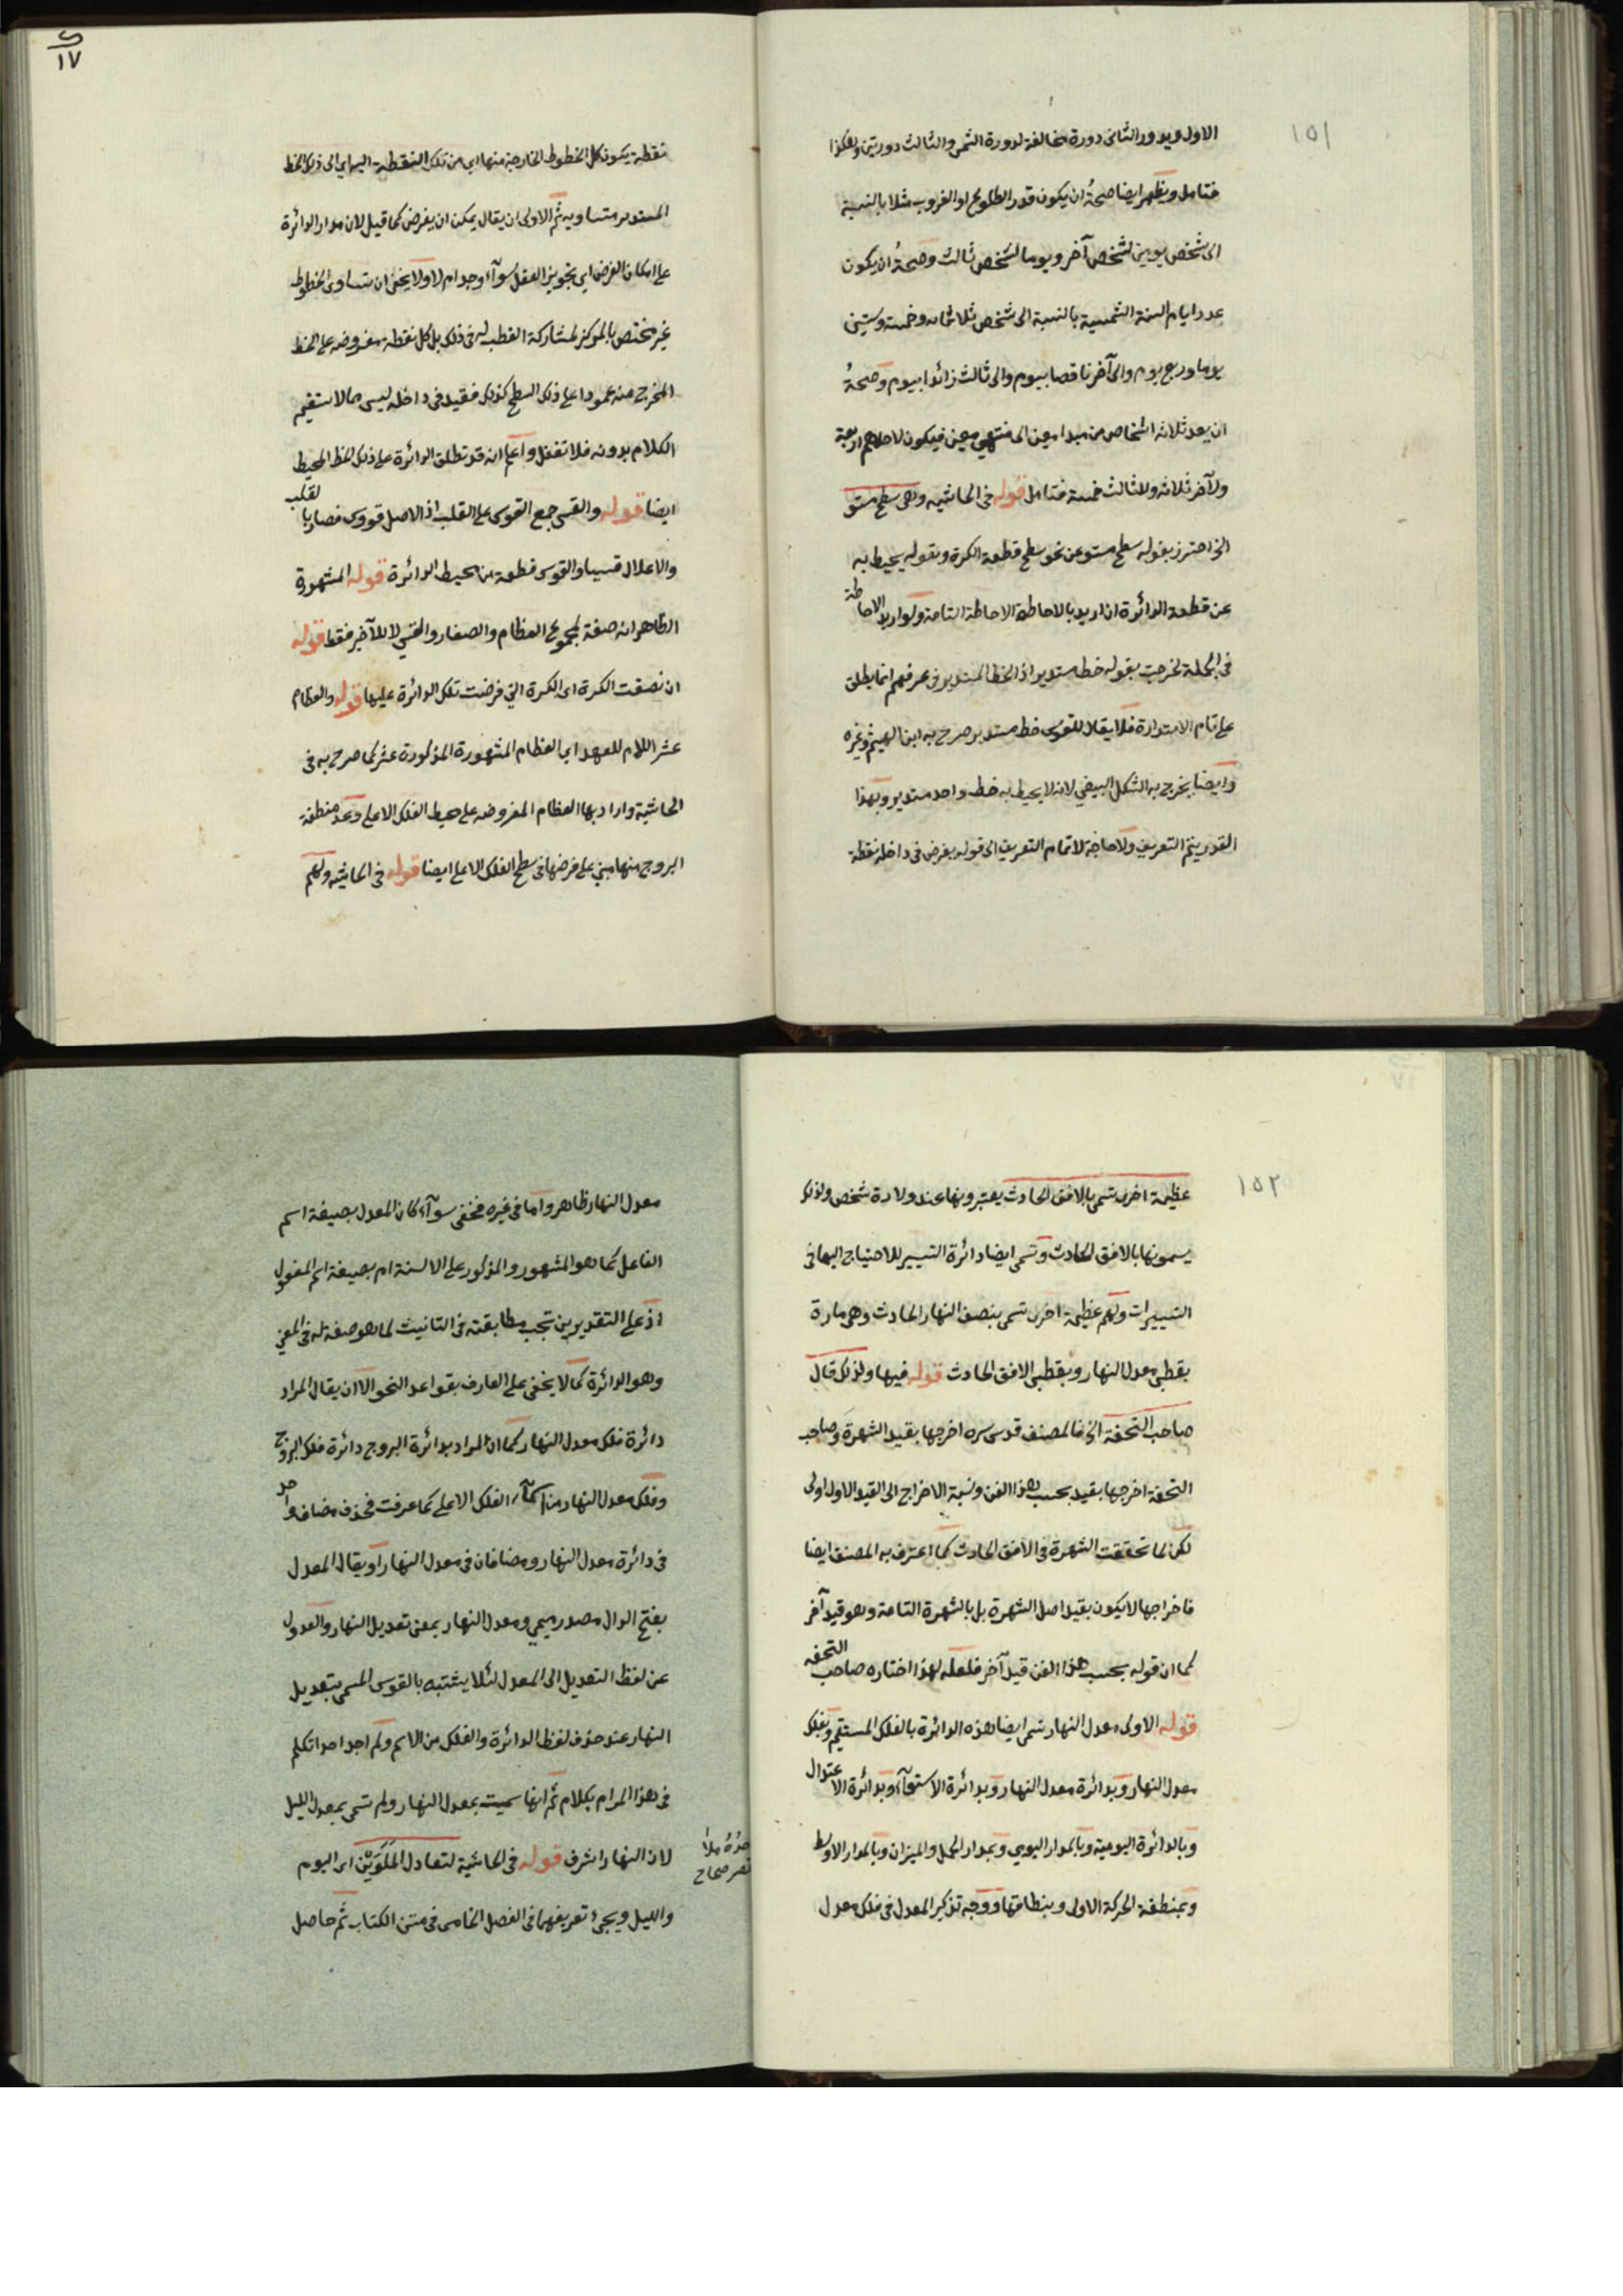 ١٥١
الاول ويدور الثانى دورة مخالفة لدورة الشمس والثالث دورتين وهكذا
فتامل ويظهر ايضا صحة ان يكون قدر الطلوع او الغروب مثلا بالنسبة
الى شخص يومين لشخص آخر ويوما لشخص ثالث وصحة ان يكون
عدد ايام السنة الشمسية بالنسبة الى شخص ثلاثمائه وخمسة وستين
يوما وربع يوم والى آخر ناقصا بيوم والى ثالث زائدا بيوم وصحة
ان يعد ثلاثه اشخاص من مبدا معين الى منتهى معين فيكون لاحدهم اربعة
ولآخر ثلاثه وللثالث خمسة فتامل قوله فى الحاشيه وهى سطح مستو
الخ احترز بقوله سطح مستو عن نحو سطح قطعة الكرة وبقوله يحيط به
عن قطعة الدائرة ان اريد بالاحاطة الاحاطة التامة ولو اريد الاحاطة
فى الجملة لخرجت بقوله خط مستدير اذ الخط المستدير فى عرفهم انما يطلق
على تام الاستدارة فلا يقال للقوس خط مستدير صرح به ابن الهيثم وغيره
وايضا يخرج به الشكل البيضي لانه لا يحيط به خط واحد مستدير وبهذا
القدر يتم التعريف ولا حاجة لاتمام التعريف الى قوله يفرض فى داخله نقطة
١٧
نقطة يكون كل الخطوط الخارجة منها اي من تلك النقطة اليه اي الى ذلك الخط
المستدير متساويه ثم الاولى ان يقال يمكن ان يفرض كما قيل لان مدار الدائرة
على امكان الفرض اي تجويز العقل سوآء وجد ام لا ولا يخفى ان تساوى الخطوط
غير مختص بالمركز لمشاركة القطب له فى ذلك بل كل نقطة مفروضه على الخط
المخرج منه عمودا على ذلك السطح كذلك فقيد فى داخله ليس مما لا يستقيم
الكلام بدونه فلا تغفل واعلم انه قد تطلق الدائرة على ذلك الخط المحيط
ايضا قوله والقسى جمع القوس على القلب اذ الاصل قووس فصار بالقلب
والاعلال قسيا والقوس قطعة من محيط الدائرة قوله المشهورة
الظاهر انه صفة لمجموع العظام والصغار والقسي لا للآخير فقط قوله
ان نصفت الكرة اى الكرة التي فرضت تلك الدائرة عليها قوله والعظام
عشر اللام للعهد اي العظام المشهورة المذكورة عشر كما صرح به فى
الحاشية واراد بها العظام المفروضه على محيط الفلك الاعلى وعد منطقة
البروج منها مبني على فرضها فى سطح الفلك الاعلى ايضا قوله فى الحاشيه ولهم
١٥٢
عظيمة اخرى تسمى بالافق الحادث يعتبرونها عند ولادة شخص ولذلك
يسمونها بالافق الحادث وتسمى ايضا دائرة التسيير للاحتياج اليها فى
التسييرات ولهم عظيمة اخرى تسمى بنصف النهار الحادث وهى مارة
بقطبى معدل النهار وبقطبى الافق الحادث قوله فيها ولذلك قال
صاحب التحفة الخ فالمصنف قدس سره اخرجها بقيد الشهرة وصاحب
التحفة اخرجها بقيد بحسب هذا الفن ونسبة الاخراج الى القيد الاول اولى
لكن لما تحققت الشهرة فى الافق الحادث كما اعترف به المصنف ايضا
فاخراجها لا يكون بقيد اصل الشهرة بل بالشهرة التامة وهو قيد آخر
كما ان قوله بحسب هذا الفن قيد آخر فلعله لهذا اختاره صاحب التحفه
قوله الاولى معدل النهار تسمى ايضا هذه الدائرة بالفلك المستقيم وبفلك
معدل النهار وبدائرة معدل النهار وبدائرة الاستوآء وبدائرة الاعتدال
وبالدائرة اليومية وبالمدار اليومي وبمدار الحمل والميزان وبالمدار الاوسط
وبمنطقة الحركة الاولى وبنطاقها ووجه تذكير المعدل فى فلك معدل
معدل النهار ظاهر واما فى غيره فخفى سوآء كان المعدل بصيغة اسم
الفاعل كما هو المشهور والمذكور على الالسنة ام بصيغة اسم المفعول
اذ على التقديرين تجب مطابقته فى التانيث لما هو صفة له فى المعنى
وهو الدائرة كما لا يخفى على العارف بقواعد النحو الا ان يقال المراد
دائرة فلك معدل النهار كما ان المراد بدائرة البروج دائرة فلك البروج
وفلك معدل النهار من اسمآء الفلك الاعلى كما عرفت فحذف مضاف واحد
فى دائرة معدل النهار ومضافان فى معدل النهار او يقال المعدل
بفتح الدال مصدر ميمي ومعدل النهار بمعنى تعديل النهار والعدول
عن لفظ التعديل الى المعدل لئلا يشتبه بالقوس المسمى بتعديل
النهار عند حذف لفظ الدائرة والفلك من الاسم ولم اجد احدا تكلم
فى هذا المرام بكلام ثم انها سميت بمعدل النهار ولم تسمى بمعدل الليل
لان النهار اشرف قوله فى الحاشية لتعادل الملوين اى اليوم
والليل ويجئ تعريفهما فى الفصل الخامس فى متن الكتاب ثم حاصل
صحاح